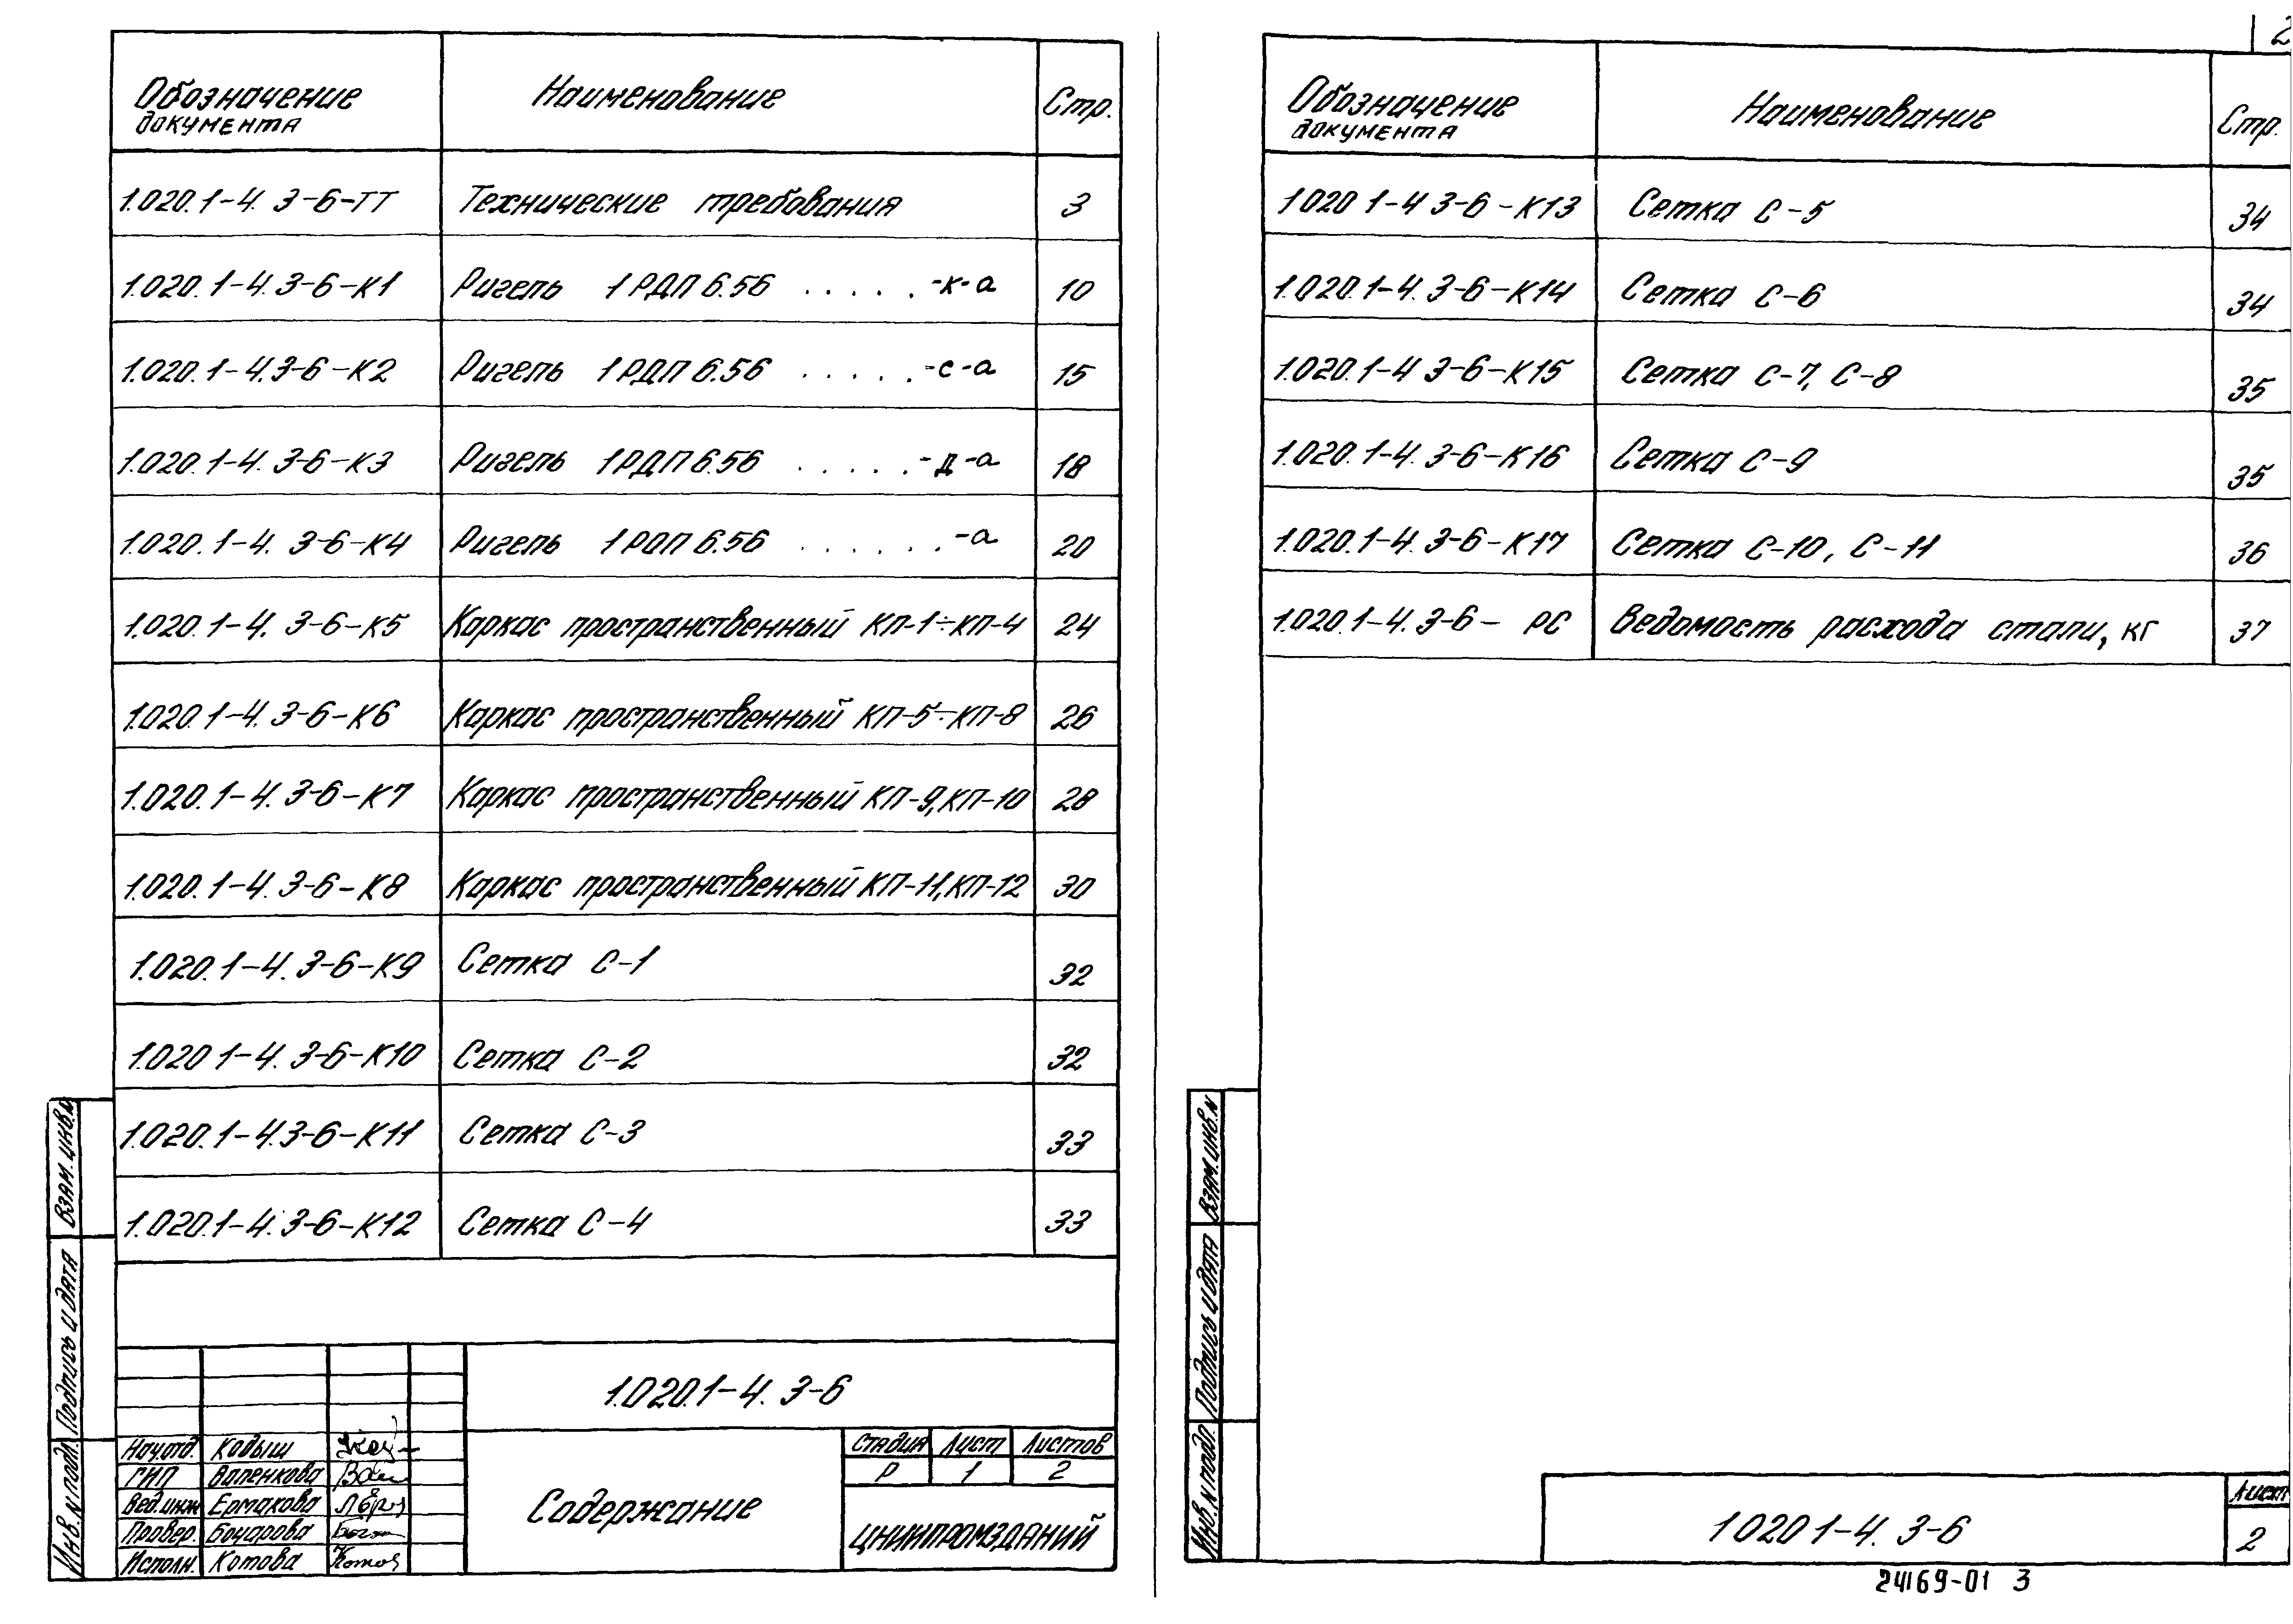 Обозначение документа Наименование Стр.
1.020.1-4. 3-6-ТТ Технические требования 3
1.020.1-4.3-6-К1 Ригель 1РДП6.56 .....-к-а 10
1.020.1-4.3-6-К2 Ригель 1РДП6.56 .....-с-а 15
1.020.1-4.3-6-К3 Ригель 1РДП6.56 .....-д-а 18
1.020.1-4.3-6-К4 Ригель 1РОП6.56 ......-а 20
1.020.1-4.3-6-К5 Каркас пространственный КП-1÷КП-4 24
1.020.1-4.3-6-К6 Каркас пространственный КП-5÷КП-8 26
1.020.1-4.3-6-К7 Каркас пространственный КП-9,КП-10 28
1.020.1-4.3-6-К8 Каркас пространственный КП-11,КП-12 30
1.020.1-4.3-6-К9 Сетка С-1 32
1.020 1-4.3-6-К10 Сетка С-2 32
1.020.1-4.3-6-К11 Сетка С-3 33
1.020.1-4.3-6-К12 Сетка С-4 33
1.020.1-4. 3-6
Нач.отд. Кодыш
ГИП Валенкова
Вед.инж Ермакова
Провер. Бочарова
Исполн. Котова
Содержание
Стадия Лист Листов
Р 1 2
ЦНИИПРОМЗДАНИЙ
Взам.инв.N
Подпись и дата
Инв.N подл.
2
Обозначение документа Наименование Стр.
1020 1-4 3-6-К13 Сетка С-5 34
1.020.1-4.3-6-К14 Сетка С-6 34
1.020.1-4 3-6-К15 Сетка С-7, С-8 35
1.020.1-4.3-6-К16 Сетка С-9 35
1.020.1-4.3-6-К17 Сетка С-10, С-11 36
1.020.1-4.3-6- РС Ведомость расхода стали, кг 37
Взам.инв.N
Подпись и дата
Инв.N подл.
1020 1-4. 3-6
Лист
2
24169-01 3